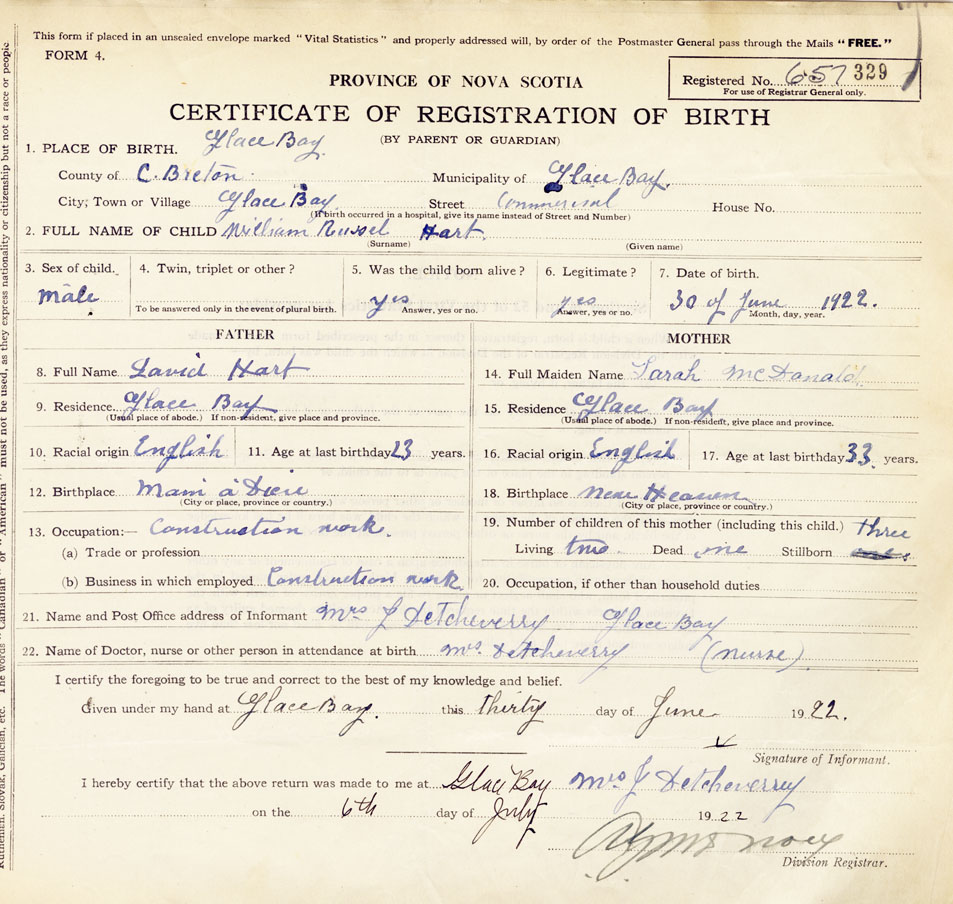 This form if placed in an unsealed envelope marked "Vital Statistics" and properly addressed will, by order of the Postmaster General pass through the Mails "FREE."
FORM 4.
PROVINCE OF NOVA SCOTIA
Registered No. 657 329
For use of Registrar General only.
CERTIFICATE OF REGISTRATION OF BIRTH
(BY PARENT OR GUARDIAN)
1. PLACE OF BIRTH. Glace Bay
County of C. Breton Municipality of Glace Bay.
City, Town or Village Glace Bay Street Commercial House No.
(If birth occurred in a hospital, give its name instead of Street and Number)
2. FULL NAME OF CHILD William Russel Hart
(Surname) (Given name)
3. Sex of child. 4. Twin, triplet or other? 5. Was the child born alive? 6. Legitimate? 7. Date of birth.
Male yes yes 30 of June 1922.
To be answered only in the event of plural birth. Answer, yes or no. Answer, yes or no. Month, day, year.
FATHER MOTHER
8. Full Name David Hart 14. Full Maiden Name Sarah McDonald
9. Residence. Glace Bay 15. Residence Glace Bay
(Usual place of abode.) If non-resident, give place and province. (Usual place of abode.) If non-resident, give place and province.
10. Racial origin English 11. Age at last birthday 23 years. 16. Racial origin English 17. Age at last birthday 33 years.
12. Birthplace Main à Dieu 18. Birthplace New Heaven
(City or place, province or country.) (City or place, province or country.)
13. Occupation:— Construction work. 19. Number of children of this mother (including this child.) three
(a) Trade or profession Living two Dead one Stillborn
(b) Business in which employed Construction work 20. Occupation, if other than household duties
21. Name and Post Office address of Informant Mrs J Detcheverry Glace Bay
22. Name of Doctor, nurse or other person in attendance at birth Mrs. Detcheverry (nurse)
I certify the foregoing to be true and correct to the best of my knowledge and belief.
Given under my hand at Glace Bay. this thirty day of June 1922.
Signature of Informant.
I hereby certify that the above return was made to me at Glace Bay Mrs J Detcheverry
on the 6th day of July 1922
Division Registrar.
Ruthenian, Slovak, Galician, etc. The words "Canadian" or "American" must not be used, as they express nationality or citizenship but not a race or people